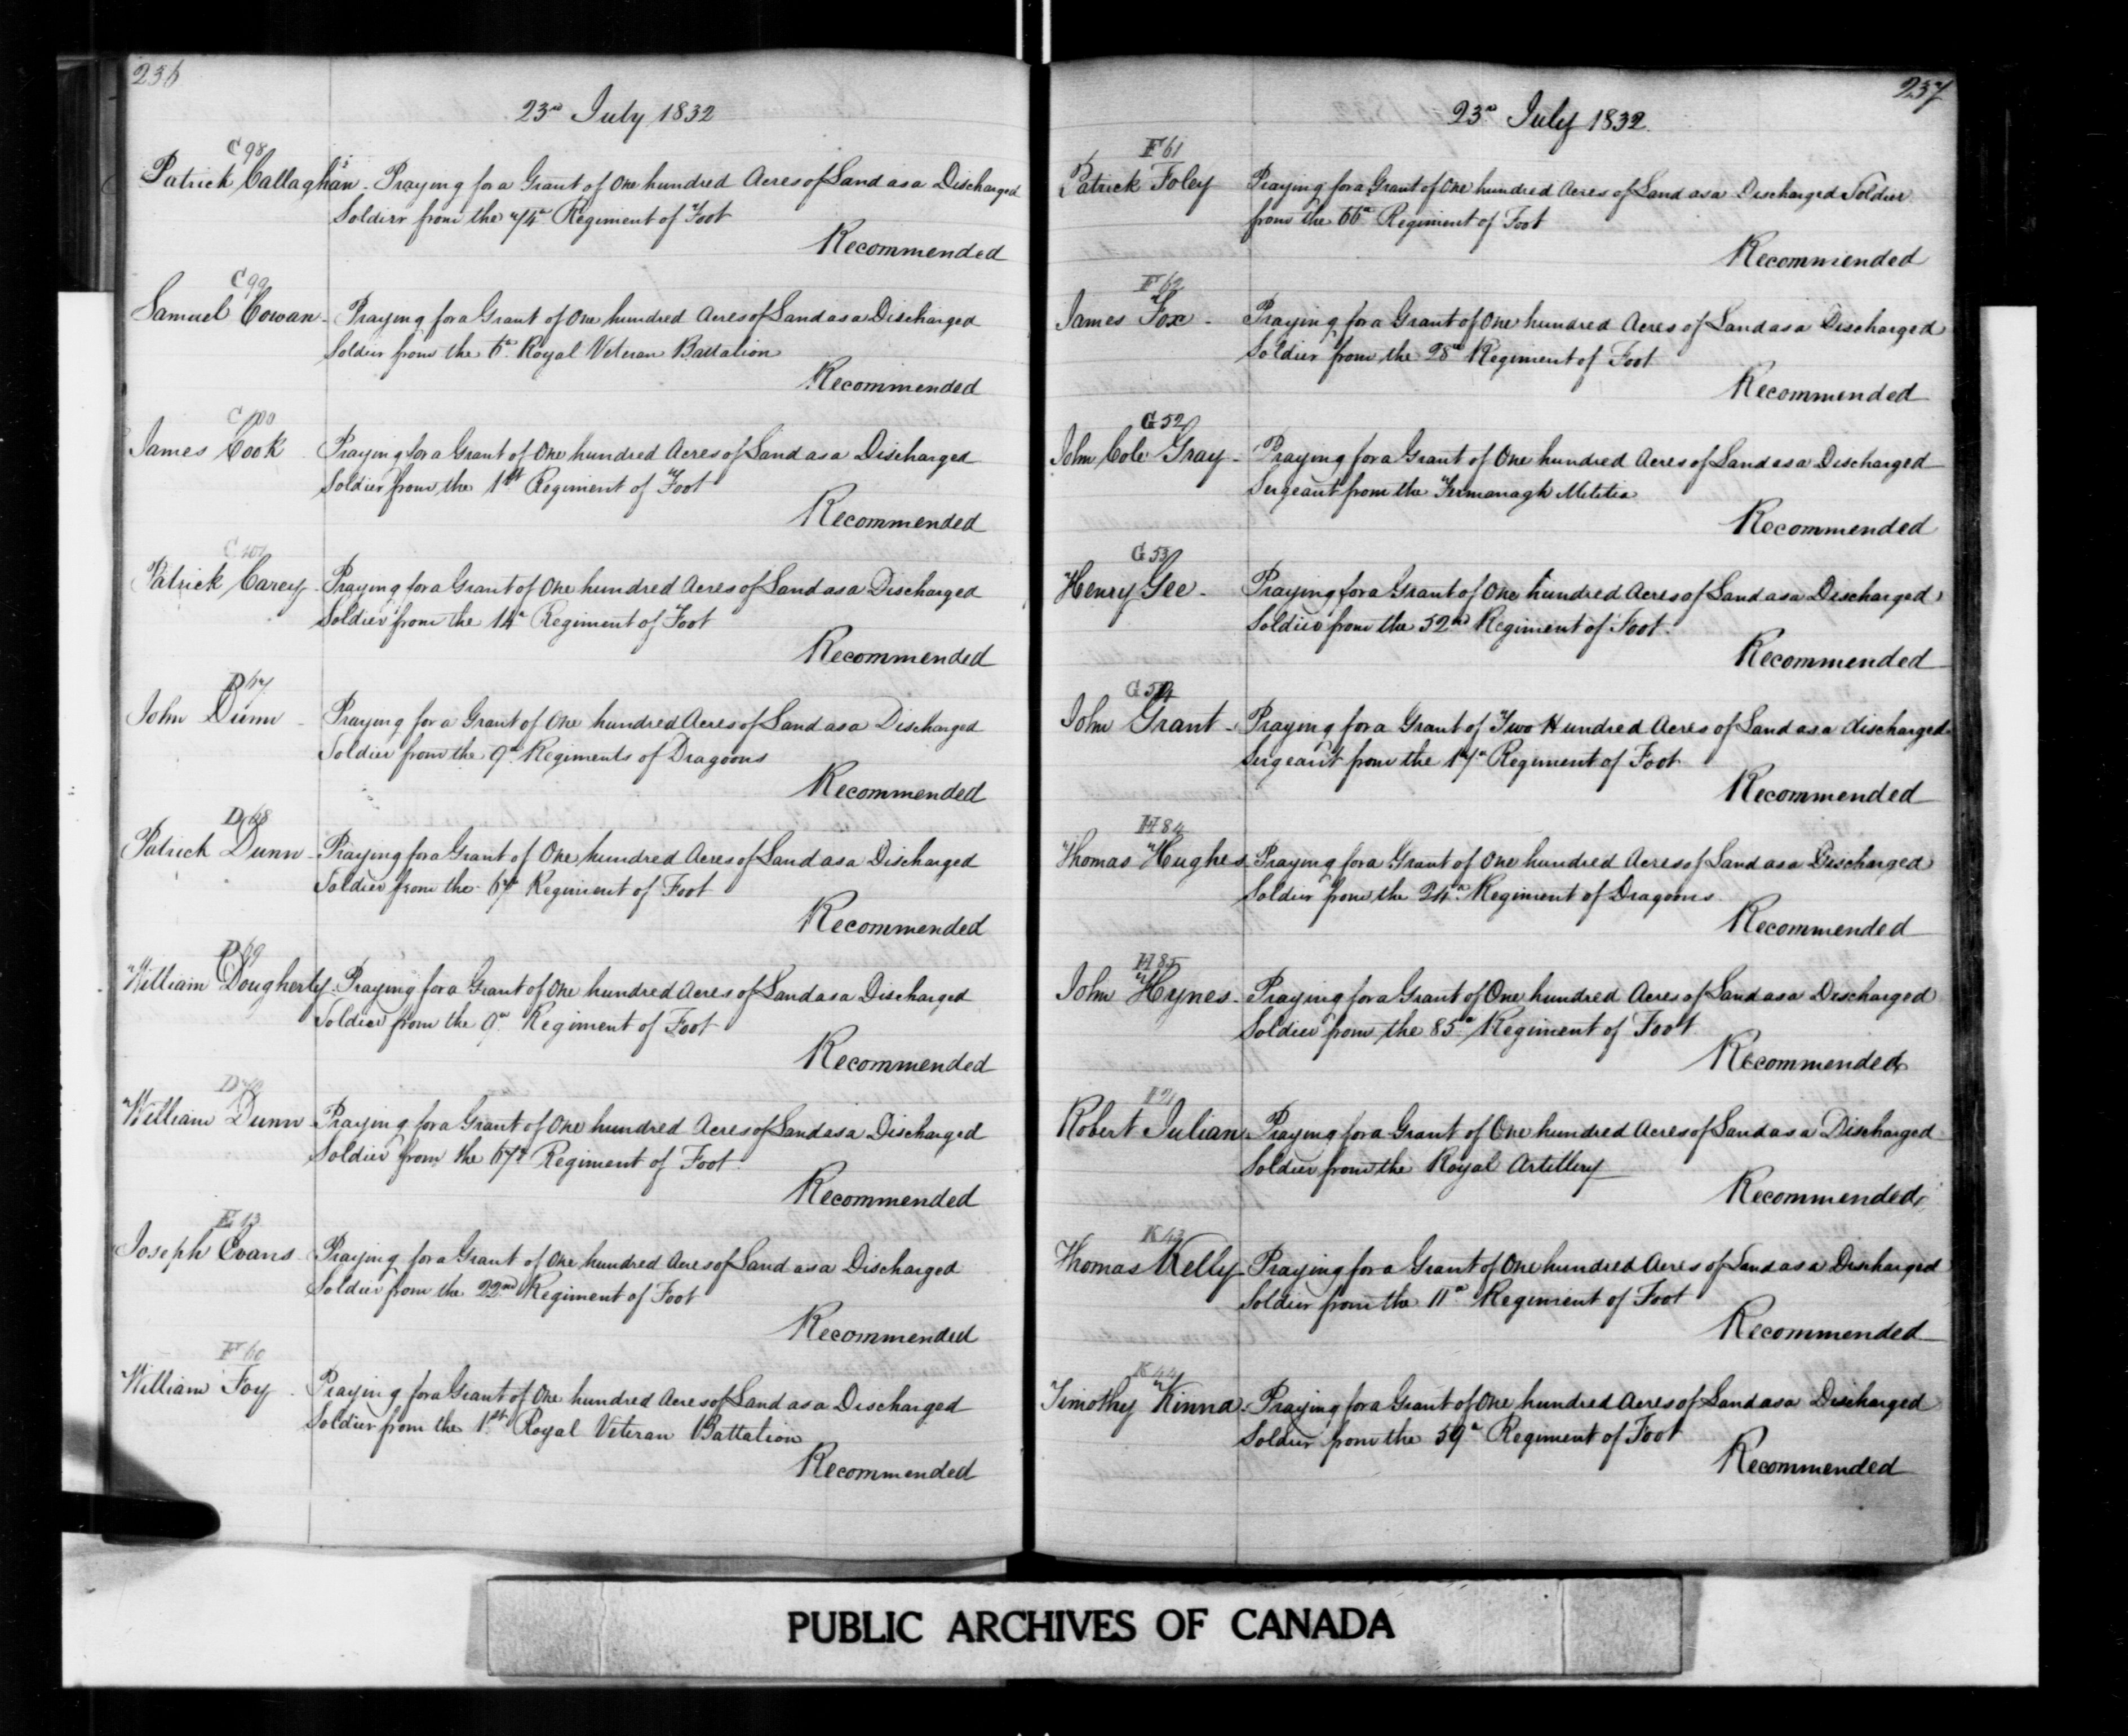 236
23rd July 1832
C 98
Patrick Callaghan - Praying for a Grant of One hundred Acres of Land as a Discharged
Soldier from the 74th Regiment of Foot
Recommended
C 99
Samuel Cowan - Praying for a Grant of One hundred Acres of Land as a Discharged
Soldier from the 6th Royal Veteran Battalion
Recommended
C 100
James Cook Praying for a Grant of One hundred Acres of Land as a Discharged
Soldier from the 1st Regiment of Foot
Recommended
C 101
Patrick Carey - Praying for a Grant of One hundred Acres of Land as a Discharged
Soldier from the 14th Regiment of Foot
Recommended
D 67
John Dunn - Praying for a Grant of One hundred Acres of Land as a Discharged
Soldier from the 9th Regiments of Dragoons
Recommended
D 68
Patrick Dunn - Praying for a Grant of One hundred Acres of Land as a Discharged
Soldier from the 67th Regiment of Foot
Recommended
D 69
William Dougherty - Praying for a Grant of One hundred Acres of Land as a Discharged
Soldier from the 9th Regiment of Foot
Recommended
D 70
William Dunn Praying for a Grant of One hundred Acres of Land as a Discharged
Soldier from the 67th Regiment of Foot
Recommended
E 13
Joseph Evans Praying for a Grant of One hundred Acres of Land as a Discharged
Soldier from the 22nd Regiment of Foot
Recommended
F 60
William Foy - Praying for a Grant of One hundred Acres of Land as a Discharged
Soldier from the 1st Royal Veteran Battalion
Recommended
237
23rd July 1832
F 61
Patrick Foley Praying for a Grant of One hundred Acres of Land as a Discharged Soldier
from the 66th Regiment of Foot
Recommended
F 62
James Fox - Praying for a Grant of One hundred Acres of Land as a Discharged
Soldier from the 28th Regiment of Foot
Recommended
G 52
John Cole Gray - Praying for a Grant of One hundred Acres of Land as a Discharged
Sergeant from the Fermanagh Militia
Recommended
G 53
Henry Gee - Praying for a Grant of One hundred Acres of Land as a Discharged
Soldier from the 52nd Regiment of Foot.
Recommended
G 54
John Grant - Praying for a Grant of Two Hundred Acres of Land as a discharged
Sergeant from the 17th Regiment of Foot
Recommended
H 84
Thomas Hughes Praying for a Grant of One hundred Acres of Land as a Discharged
Soldier from the 24th Regiment of Dragoons
Recommended
H 85
John Hynes - Praying for a Grant of One hundred Acres of Land as a Discharged
Soldier from the 85th Regiment of Foot
Recommended
I 21
Robert Julian Praying for a Grant of One hundred Acres of Land as a Discharged
Soldier from the Royal Artillery
Recommended
K 43
Thomas Kelly - Praying for a Grant of One hundred Acres of Land as a Discharged
Soldier from the 11th Regiment of Foot
Recommended
K 44
Timothy Kinna - Praying for a Grant of One hundred Acres of Land as a Discharged
Soldier from the 59th Regiment of Foot
Recommended
PUBLIC ARCHIVES OF CANADA